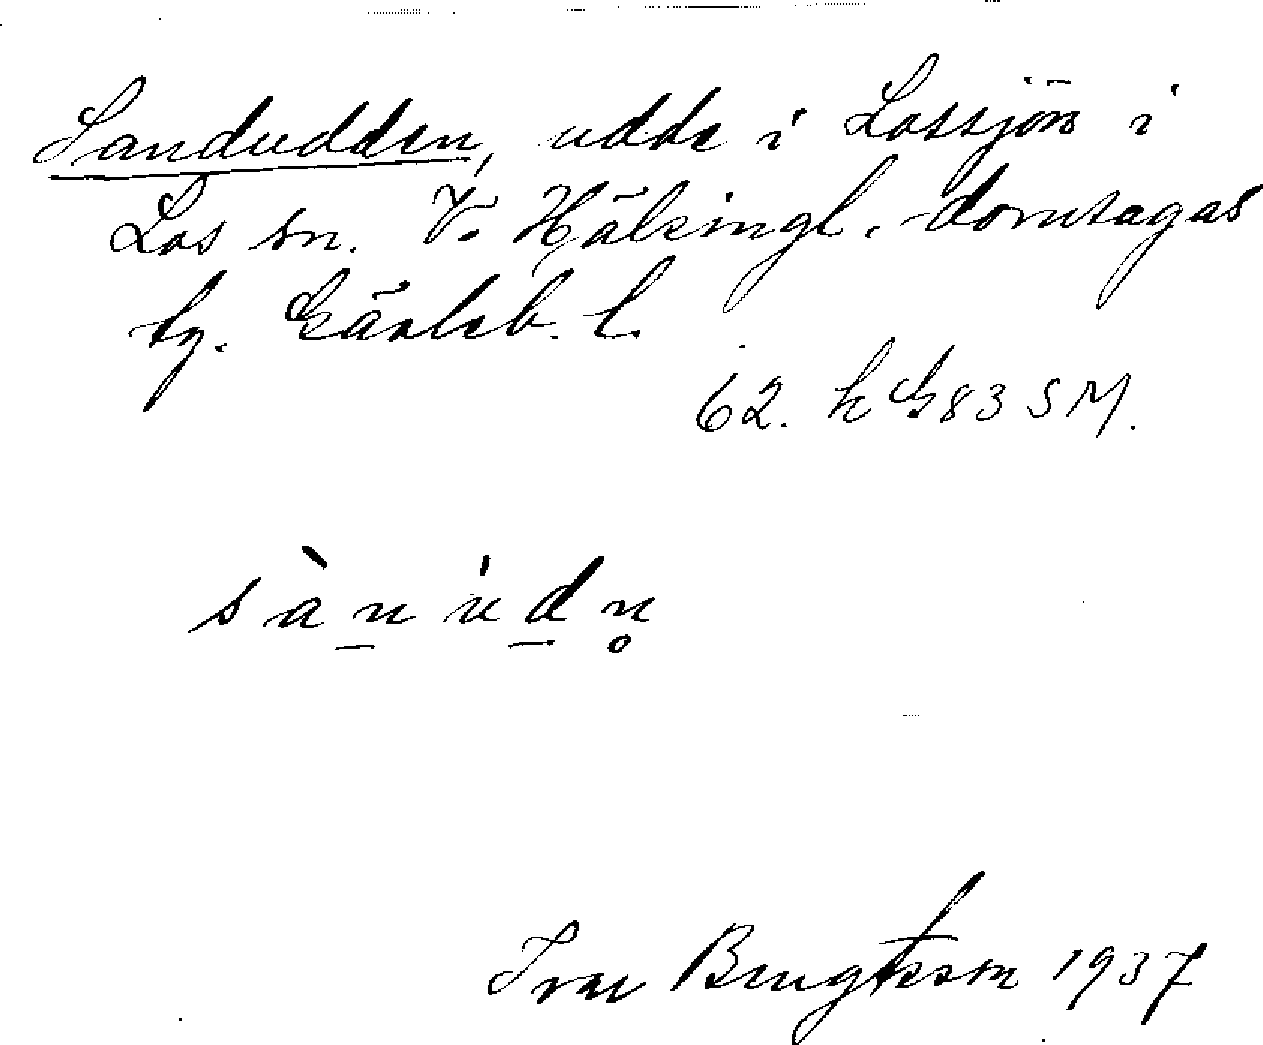 Sandudden, udde i Lossjön i
Los sn. V. Hälsingl. domsagas
tg. Gävleb. l.
62. k G 83 SM.
sànúdn̥
Ivar Bengtsson 1937